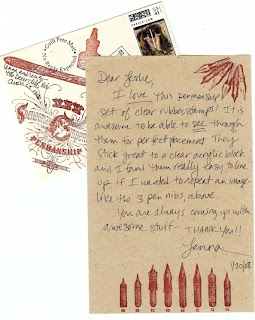 Guilt Free Mail
PENMANSHIP
Dear Leslie,
I love this penmanship
set of clear rubber stamps! It is
awesome to be able to see through
them for perfect placement. They
stick great to a clear acrylic block
and I found them really easy to line
up if I wanted to repeat an image-
like the 3 pen nibs, above.
You are always coming up with
awesome stuff - THANK YOU!!
Jenna
1/20/08